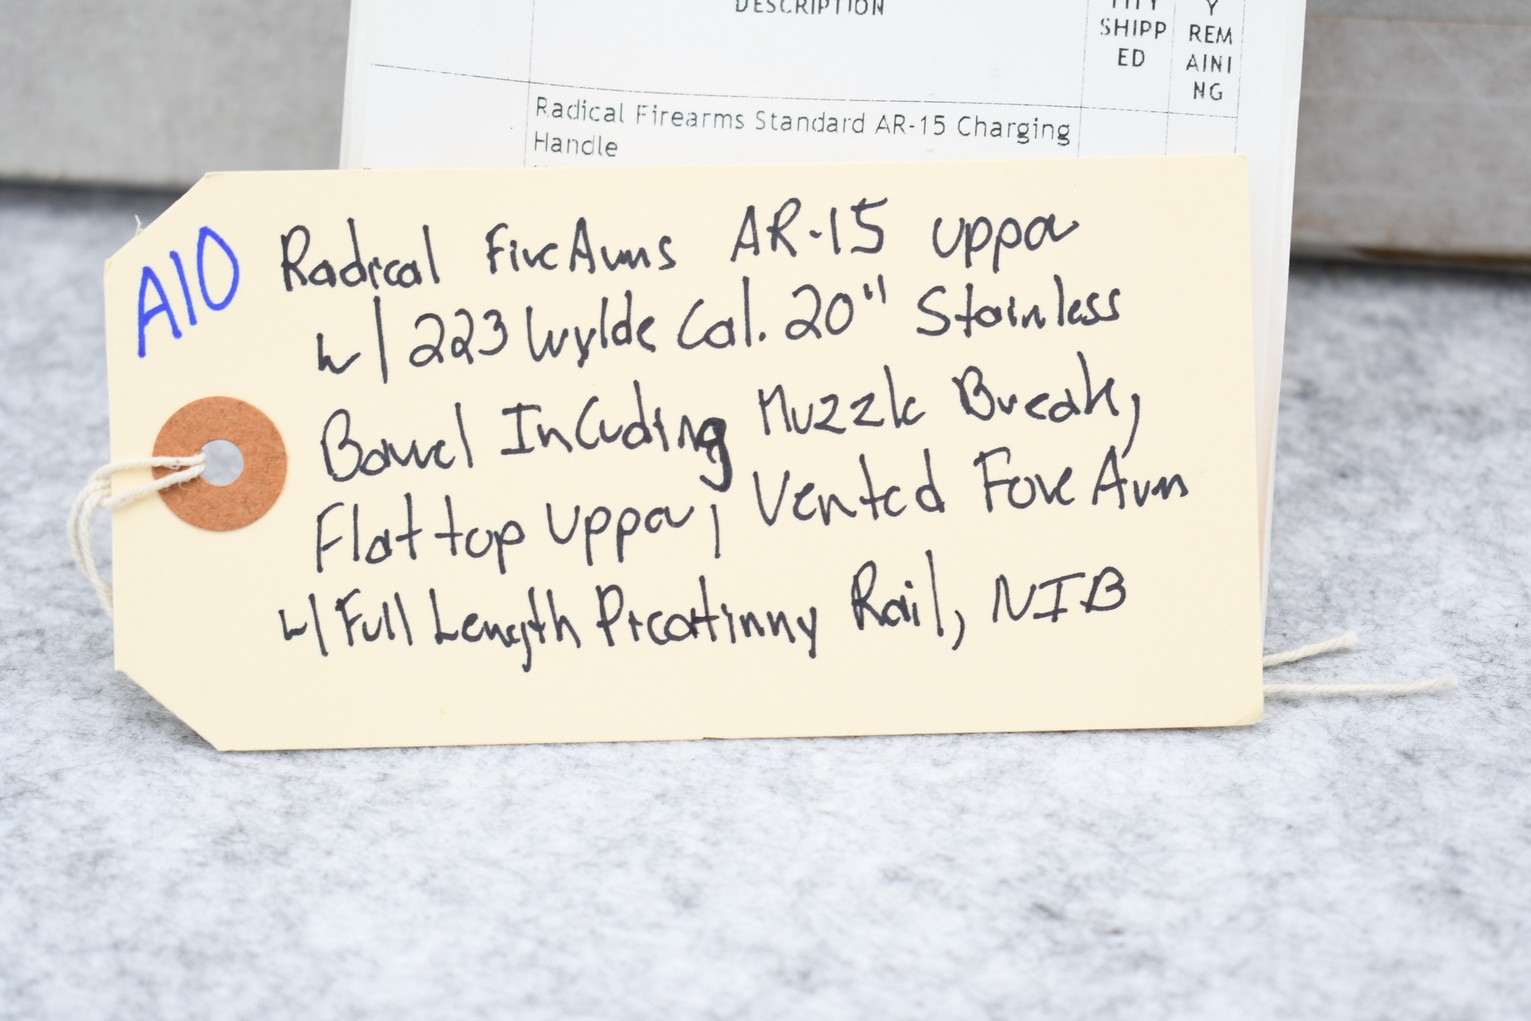 DESCRIPTION
SHIPP
ED
Y
REM
AINI
NG
Radical Firearms Standard AR-15 Charging
Handle
A10
Radical FireArms AR-15 upper
w/ 223 Wylde Cal. 20" Stainless
Barrel Incuding Muzzle Break,
Flat top upper, Vented Fore Arm
w/ Full Length Picatinny Rail, NIB